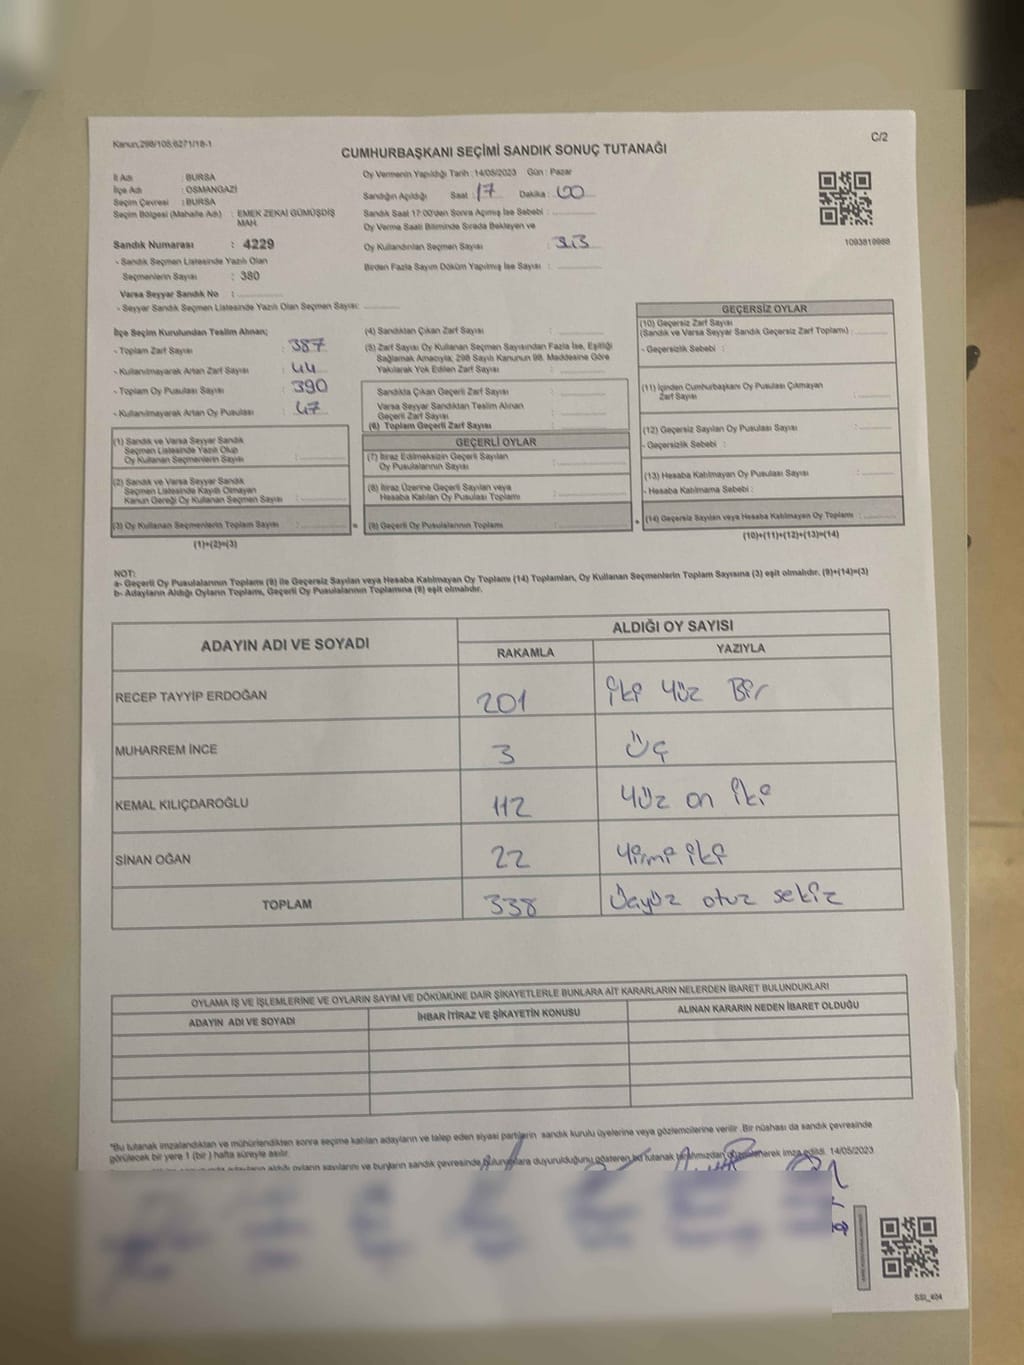 Kanun,298/105,6271/18-1
C/2
CUMHURBAŞKANI SEÇİMİ SANDIK SONUÇ TUTANAĞI
İl Adı : BURSA
İlçe Adı : OSMANGAZİ
Seçim Çevresi : BURSA
Seçim Bölgesi (Mahalle Adı) : EMEK ZEKAİ GÜMÜŞDİŞ MAH.
Sandık Numarası : 4229
- Sandık Seçmen Listesinde Yazılı Olan
Seçmenlerin Sayısı : 380
Varsa Seyyar Sandık No :
- Seyyar Sandık Seçmen Listesinde Yazılı Olan Seçmen Sayısı:
Oy Vermenin Yapıldığı Tarih : 14/05/2023 Gün : Pazar
Sandığın Açıldığı Saat : 17 Dakika : 00
Sandık Saat 17:00'den Sonra Açılmış İse Sebebi :
Oy Verme Saati Bitiminde Sırada Bekleyen ve
Oy Kullandırılan Seçmen Sayısı : 343
Birden Fazla Sayım Döküm Yapılmış İse Sayısı :
1093819988
İlçe Seçim Kurulundan Teslim Alınan;
- Toplam Zarf Sayısı : 387
- Kullanılmayarak Artan Zarf Sayısı : 44
- Toplam Oy Pusulası Sayısı : 390
- Kullanılmayarak Artan Oy Pusulası : 47
(1) Sandık ve Varsa Seyyar Sandık
Seçmen Listesinde Yazılı Olup
Oy Kullanan Seçmenlerin Sayısı :
(2) Sandık ve Varsa Seyyar Sandık
Seçmen Listesinde Kayıtlı Olmayan
Kanun Gereği Oy Kullanan Seçmen Sayısı :
(3) Oy Kullanan Seçmenlerin Toplam Sayısı : =
(1)+(2)=(3)
(4) Sandıktan Çıkan Zarf Sayısı :
(5) Zarf Sayısı Oy Kullanan Seçmen Sayısından Fazla İse, Eşitliği
Sağlamak Amacıyla; 298 Sayılı Kanunun 98. Maddesine Göre
Yakılarak Yok Edilen Zarf Sayısı :
Sandıkta Çıkan Geçerli Zarf Sayısı :
Varsa Seyyar Sandıktan Teslim Alınan
Geçerli Zarf Sayısı :
(6) Toplam Geçerli Zarf Sayısı :
GEÇERLİ OYLAR
(7) İtiraz Edilmeksizin Geçerli Sayılan
Oy Pusulalarının Sayısı :
(8) İtiraz Üzerine Geçerli Sayılan veya
Hesaba Katılan Oy Pusulası Toplamı :
(9) Geçerli Oy Pusulalarının Toplamı : +
GEÇERSİZ OYLAR
(10) Geçersiz Zarf Sayısı
(Sandık ve Varsa Seyyar Sandık Geçersiz Zarf Toplamı) :
- Geçersizlik Sebebi :
(11) İçinden Cumhurbaşkanı Oy Pusulası Çıkmayan
Zarf Sayısı :
(12) Geçersiz Sayılan Oy Pusulası Sayısı :
- Geçersizlik Sebebi :
(13) Hesaba Katılmayan Oy Pusulası Sayısı :
- Hesaba Katılmama Sebebi :
(14) Geçersiz Sayılan veya Hesaba Katılmayan Oy Toplamı :
(10)+(11)+(12)+(13)=(14)
NOT:
a- Geçerli Oy Pusulalarının Toplamı (9) ile Geçersiz Sayılan veya Hesaba Katılmayan Oy Toplamı (14) Toplamları, Oy Kullanan Seçmenlerin Toplam Sayısına (3) eşit olmalıdır. (9)+(14)=(3)
b- Adayların Aldığı Oyların Toplamı, Geçerli Oy Pusulalarının Toplamına (9) eşit olmalıdır.
ADAYIN ADI VE SOYADI ALDIĞI OY SAYISI
RAKAMLA YAZIYLA
RECEP TAYYİP ERDOĞAN 201 iki yüz Bir
MUHARREM İNCE 3 üç
KEMAL KILIÇDAROĞLU 112 yüz on iki
SİNAN OĞAN 22 yirmi iki
TOPLAM 338 üçyüz otuz sekiz
OYLAMA İŞ VE İŞLEMLERİNE VE OYLARIN SAYIM VE DÖKÜMÜNE DAİR ŞİKAYETLERLE BUNLARA AİT KARARLARIN NELERDEN İBARET BULUNDUKLARI
ADAYIN ADI VE SOYADI İHBAR İTİRAZ VE ŞİKAYETİN KONUSU ALINAN KARARIN NEDEN İBARET OLDUĞU
*Bu tutanak imzalandıktan ve mühürlendikten sonra seçime katılan adayların ve talep eden siyasi partilerin sandık kurulu üyelerine veya gözlemcilerine verilir. Bir nüshası da sandık çevresinde
görülecek bir yere 1 (bir) hafta süreyle asılır.
adayların aldığı oyların sayılarını ve bunların sandık çevresinde bulunanlara duyurulduğunu gösteren bu tutanak tarafımızdan düzenlenerek imza edildi. 14/05/2023
SSI_404